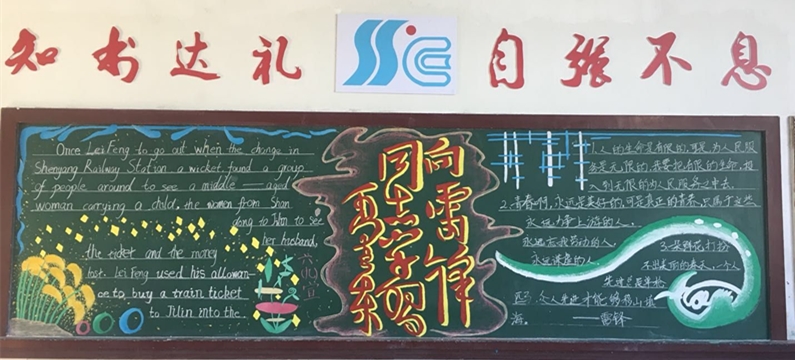 知书达礼
自强不息
Once Lei Feng to go out when the change in
Shenyang Railway Station a wicket, found a group
of people around to see a middle —— aged
woman carrying a child, the women from Shan
dong to Jilin to see
her husband,
the ticket and the money
lost. Lei Feng used his allowan-
ce to buy a train ticket
to Jilin into the.
向雷锋
同志学习
1.人的生命是有限的,可是,为人民服
务是无限的,我要把有限的生命,投
入到无限的为人民服务之中去。
2.青春啊,永远是美好的,可是真正的青春,只属于这些
永远力争上游的人,
永远忘我劳动的人,
永远谦虚的人。
3.一朵鲜花打扮
不出美丽的春天,一个人
先进总是单枪
匹马,众人先进才能够移山填
海。 ——雷锋